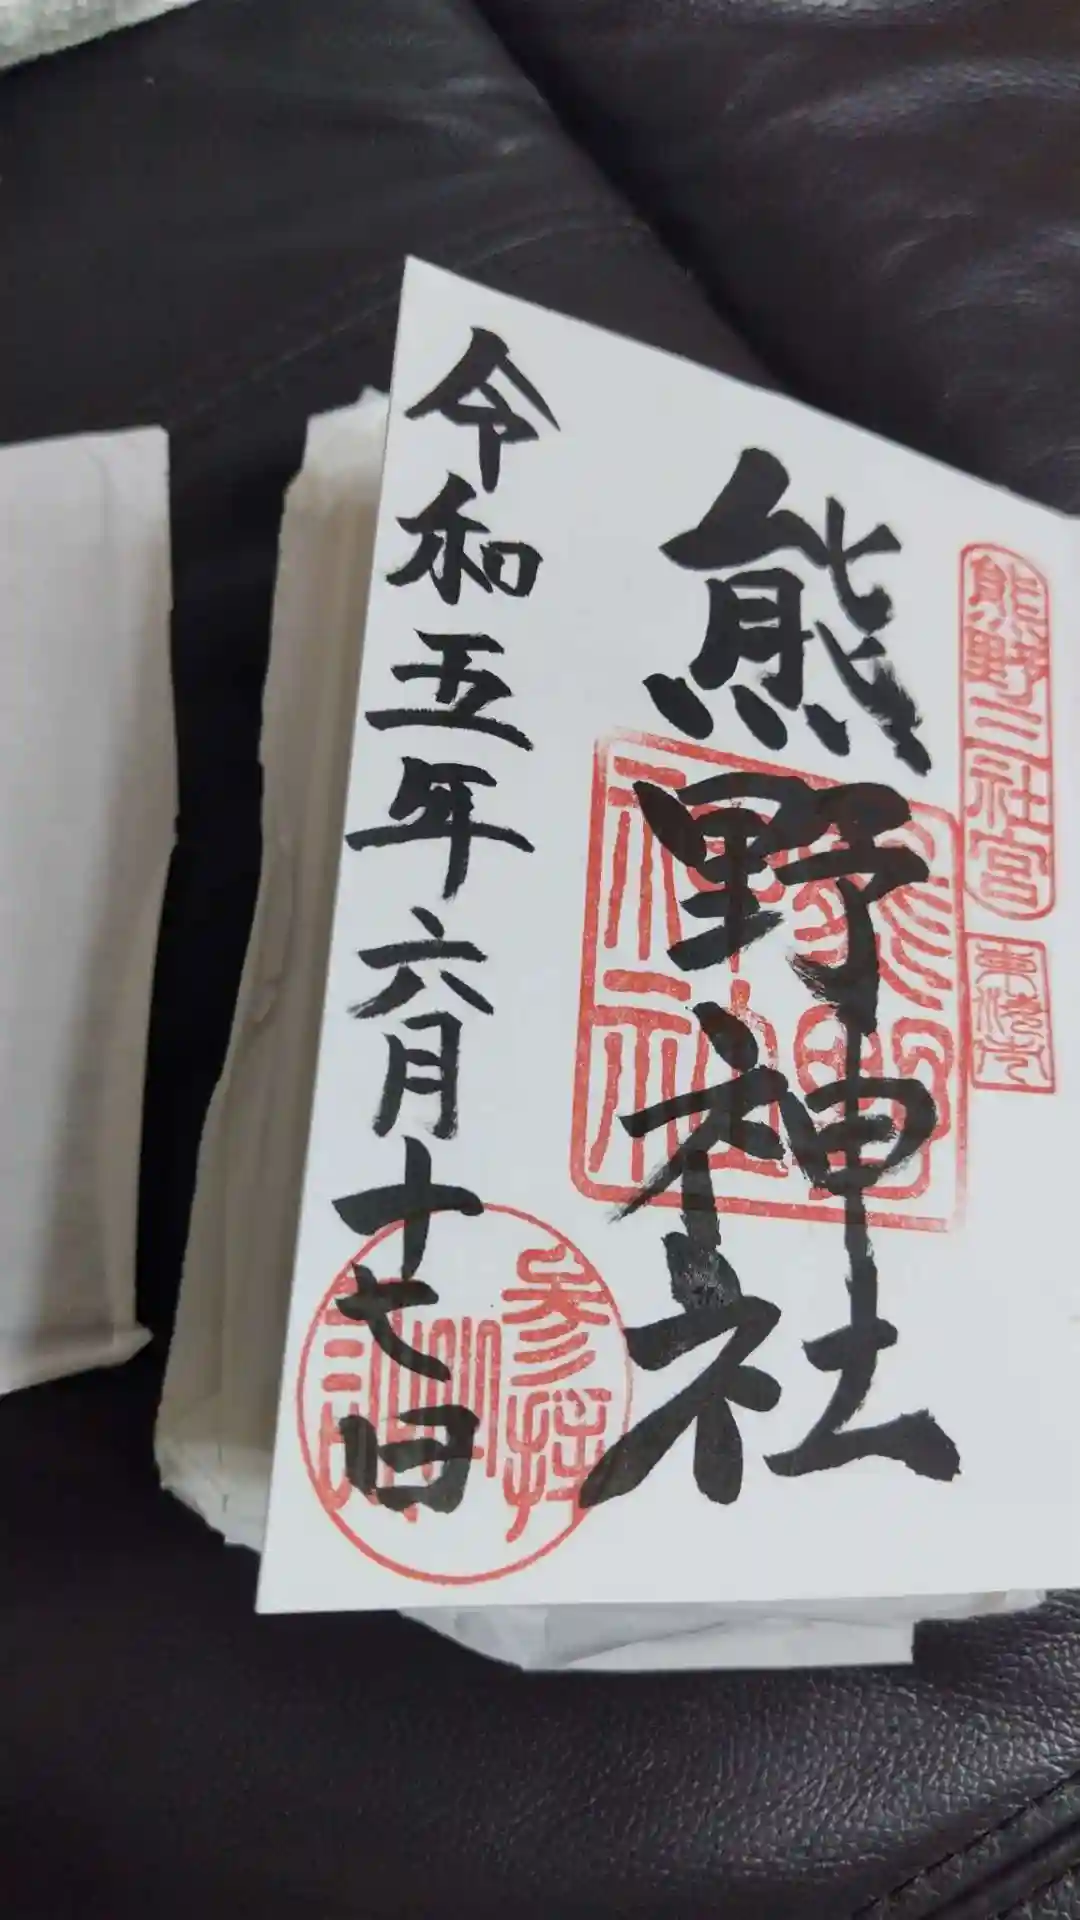 熊野三社宮
熊野神社
熊野
神社
参拝
令和五年六月十七日